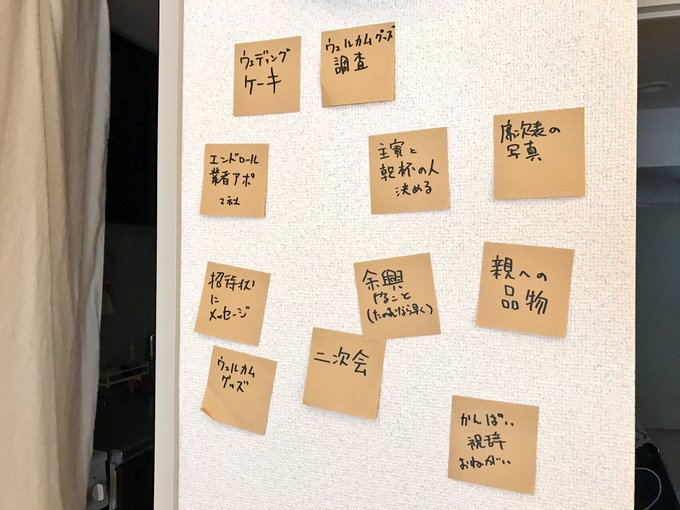 ウェディング
ケーキ
ウェルカムグッズ
調査
エンドロール
業者アポ
2社
主賓と
乾杯の人
決める
席次表の
写真
招待状
に
メッセージ
余興
やること
(たのむなら早く)
親への
品物
ウェルカム
グッズ
二次会
かんぱい
祝辞
おねがい